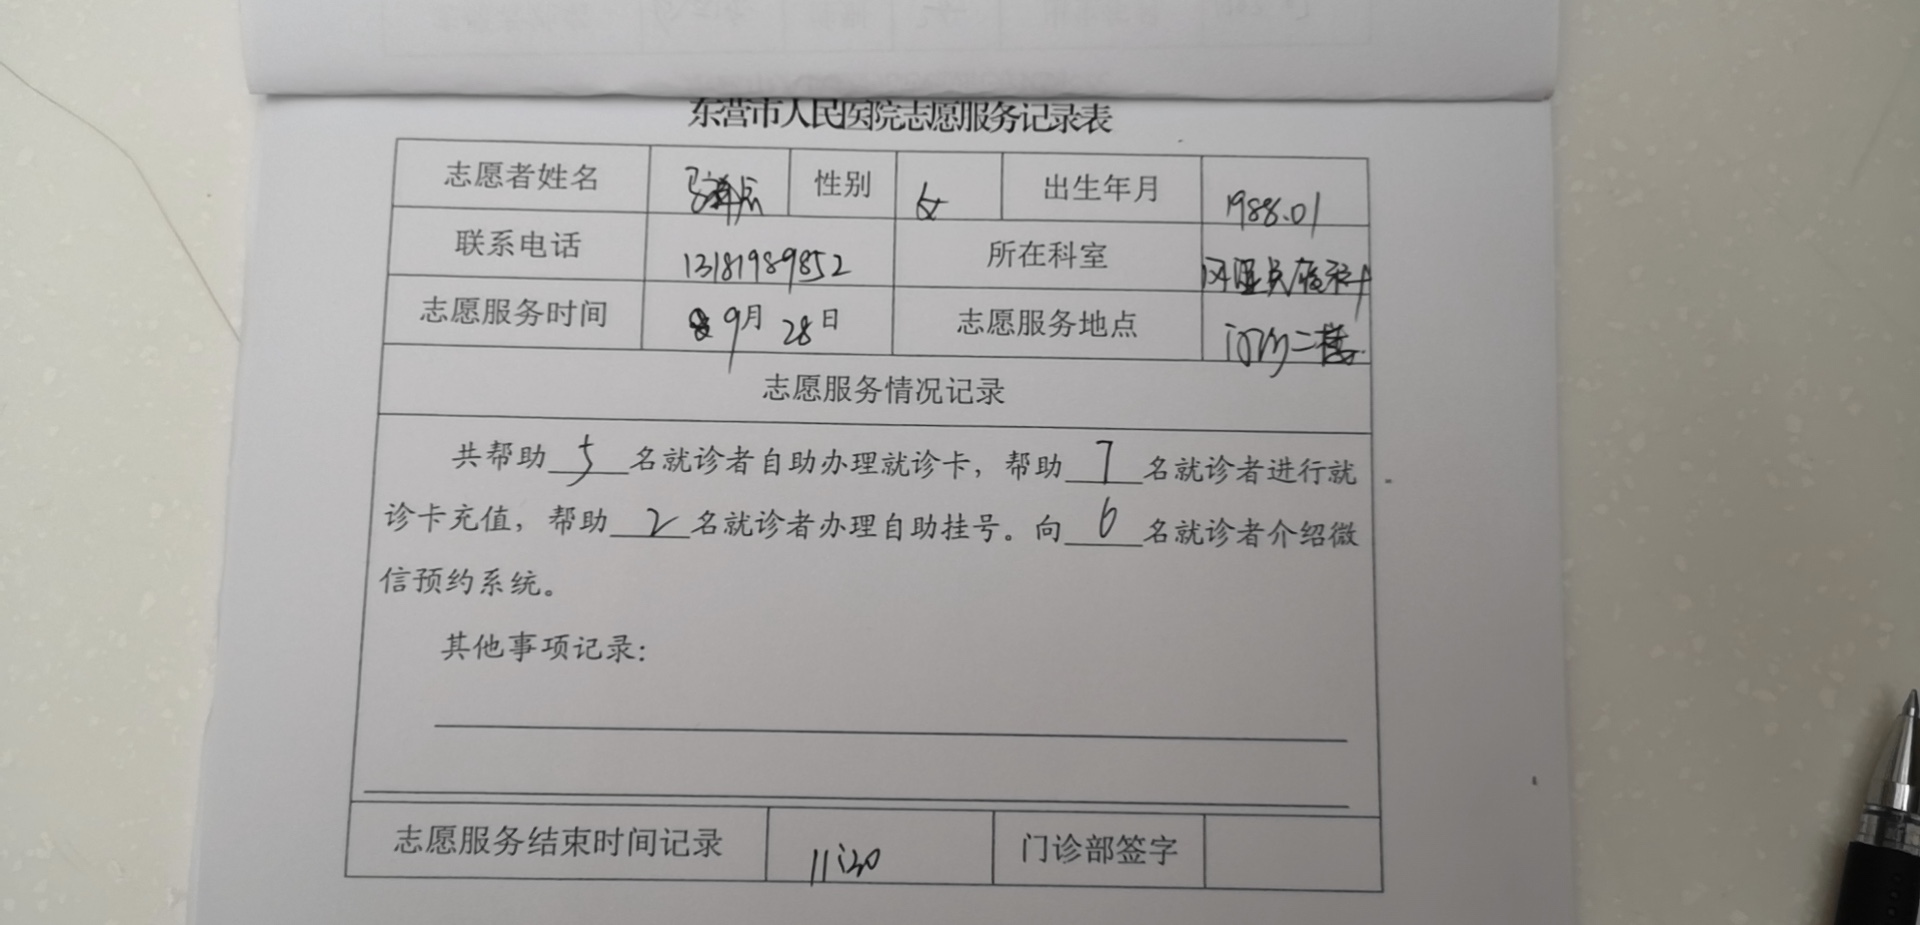 东营市人民医院志愿服务记录表
志愿者姓名 性别 女 出生年月 1988.01
联系电话 13181989852 所在科室 风湿免疫科
志愿服务时间 9月28日 志愿服务地点 门诊二楼
志愿服务情况记录
共帮助 5 名就诊者自助办理就诊卡，帮助 7 名就诊者进行就
诊卡充值，帮助 2 名就诊者办理自助挂号。向 6 名就诊者介绍微
信预约系统。
其他事项记录：
志愿服务结束时间记录 11:30 门诊部签字